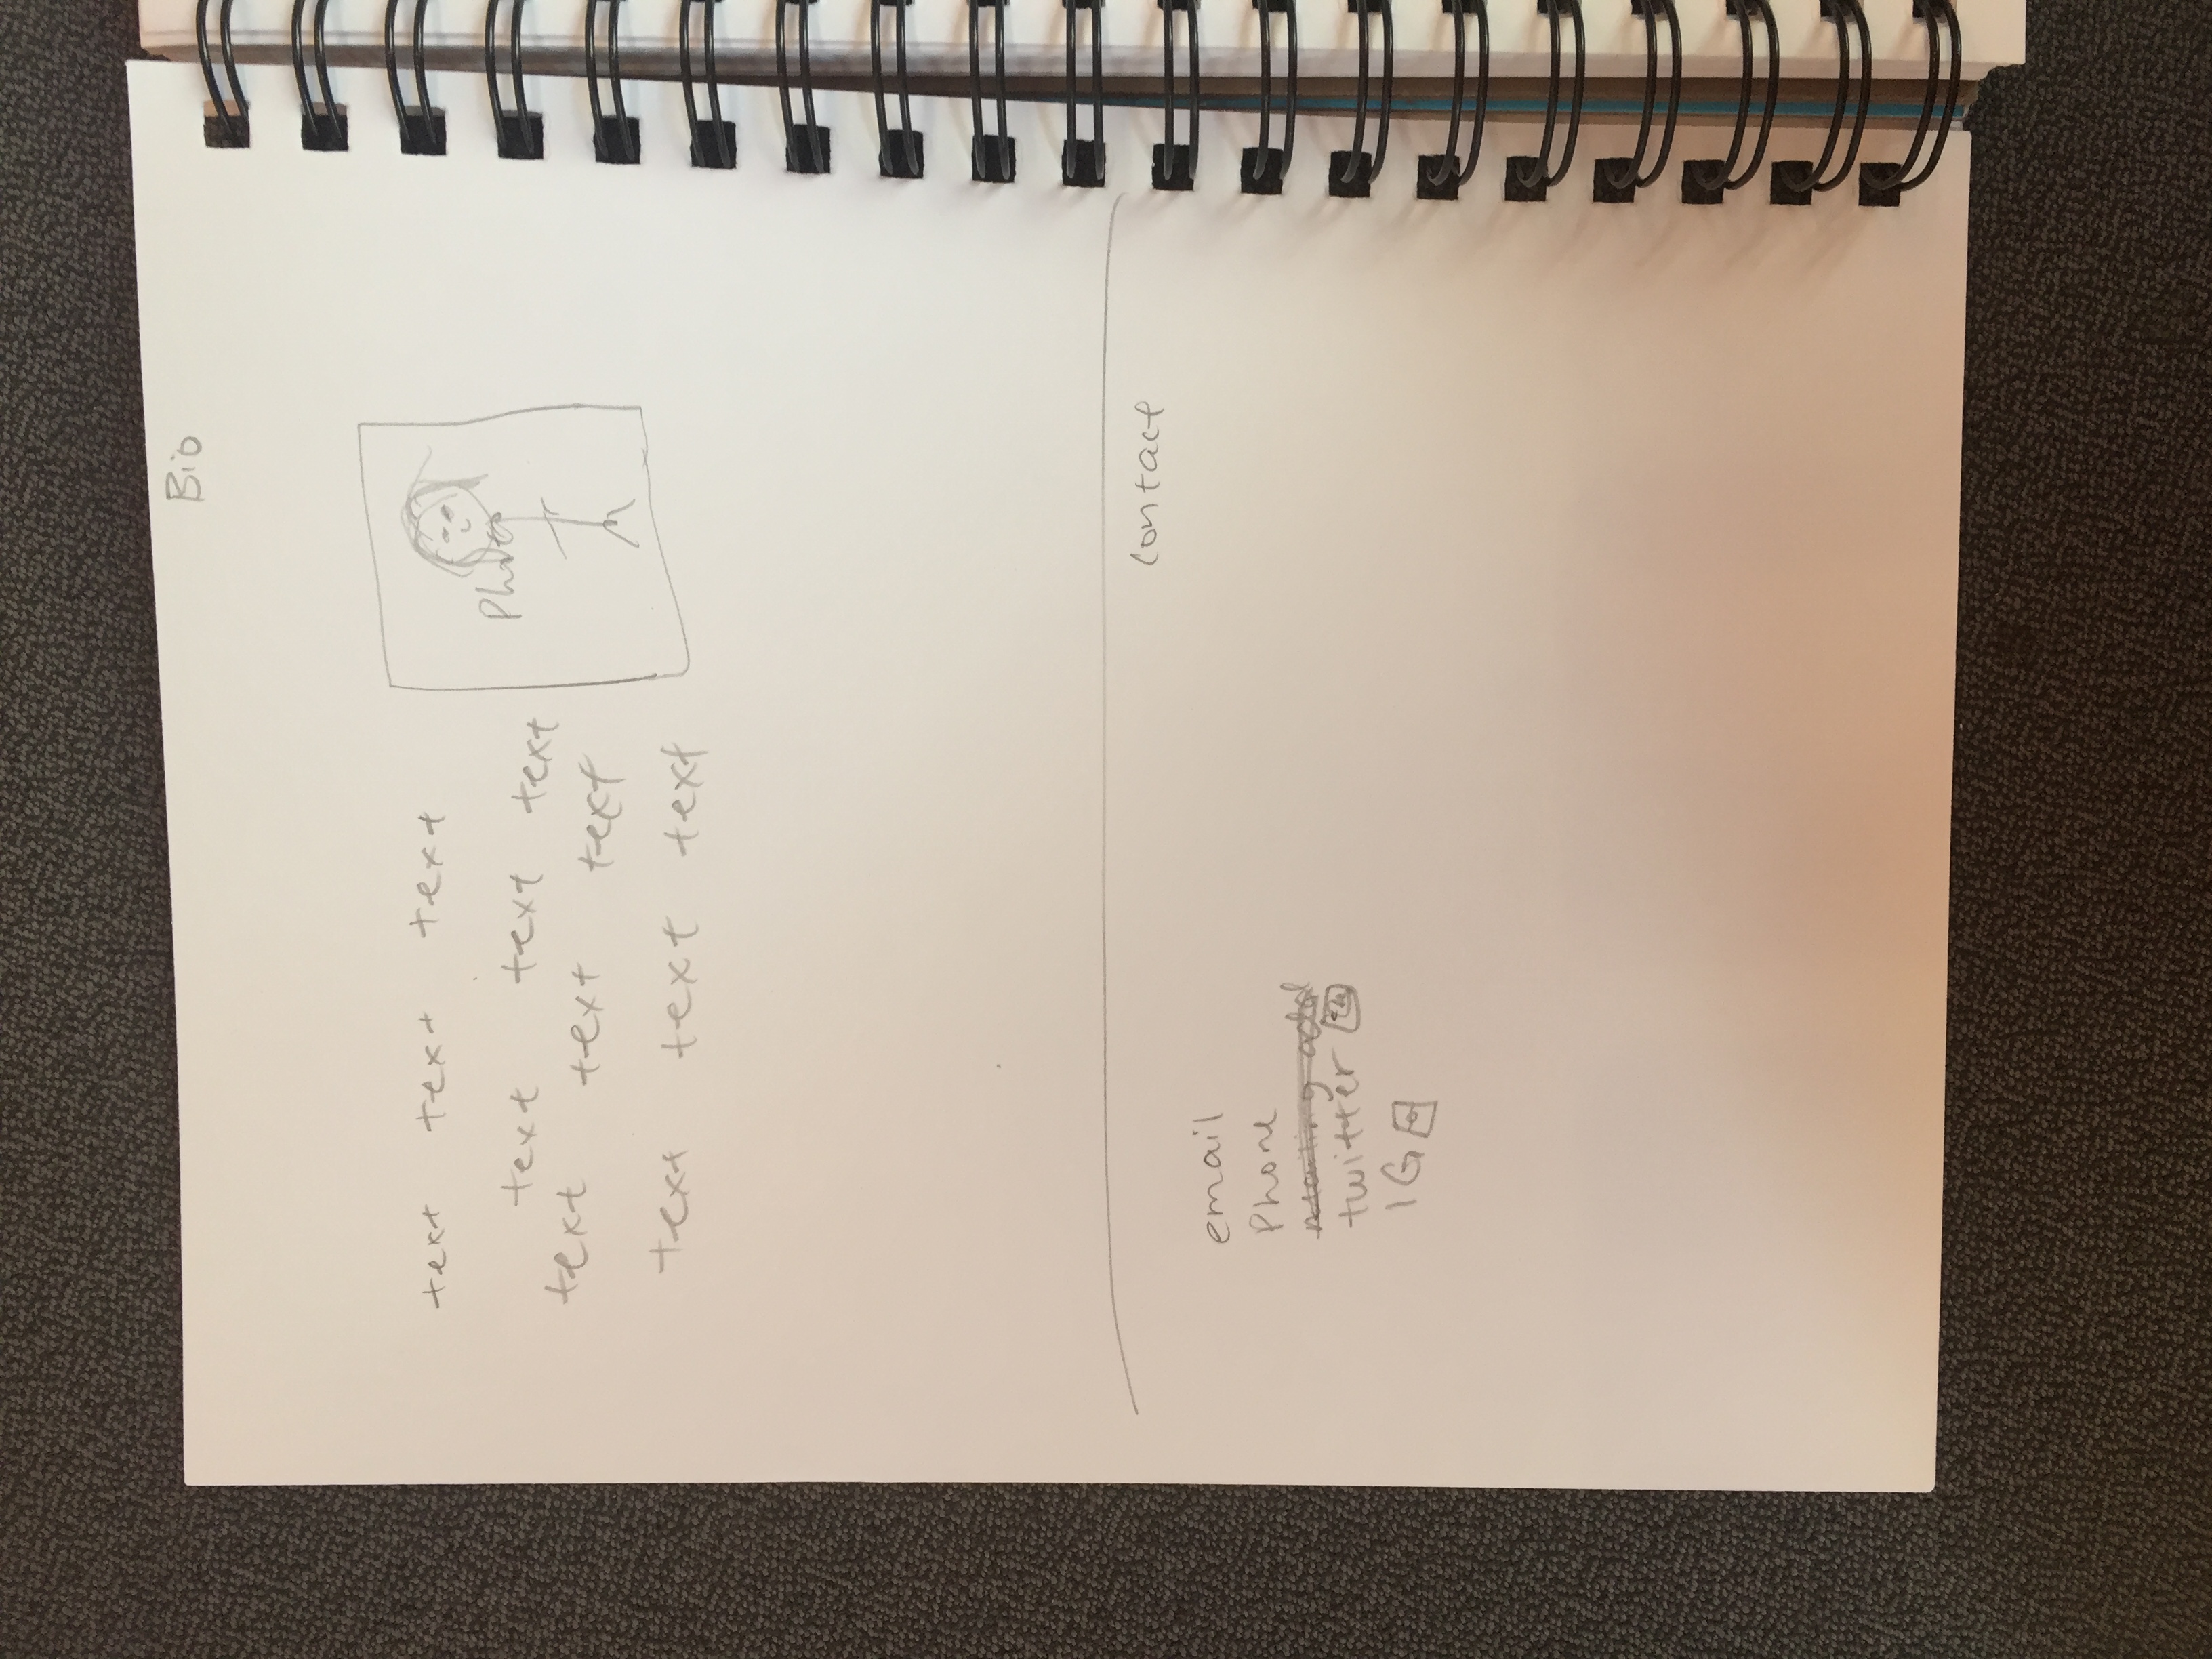 Bio
text text text
Photo
text text text
text text text
text text text
contact
email
Phone
mailing add
twitter
IG